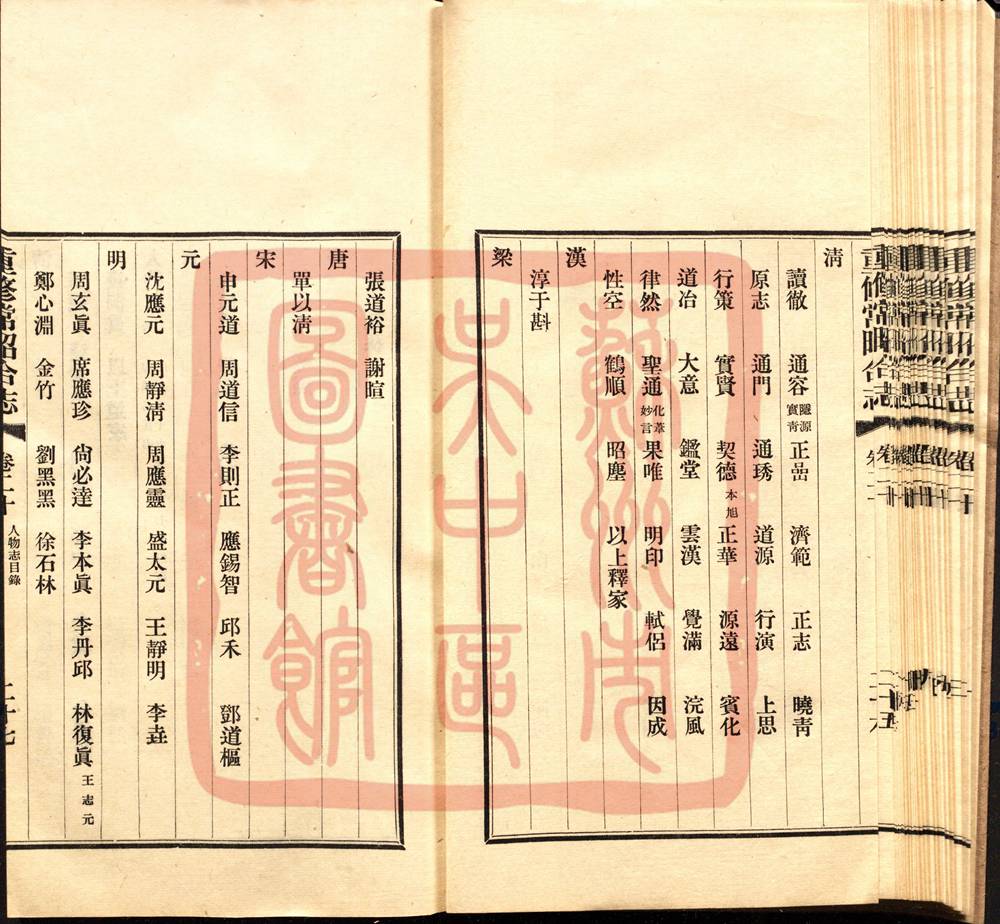 清
讀徹 通容 隱源 實靑 正嵒 濟範 正志 曉靑
原志 通門 通琇 道源 行演 上思
行策 實賢 契德 本旭 正華 源遠 賓化
道冶 大意 鑑堂 雲漢 覺滿 浣風
律然 聖通 化葦 妙言 果唯 明印 軾侶 因成
性空 鶴順 昭塵 以上釋家
漢
淳于斟
梁
張道裕 謝暄
唐
單以淸
宋
申元道 周道信 李則正 應錫智 邱禾 鄧道樞
元
沈應元 周靜淸 周應靈 盛太元 王靜明 李垚
明
周玄眞 席應珍 尙必達 李本眞 李丹邱 林復眞 王志元
鄭心淵 金竹 劉黑黑 徐石林
重修常昭合志 卷二十 人物志目錄 二十七